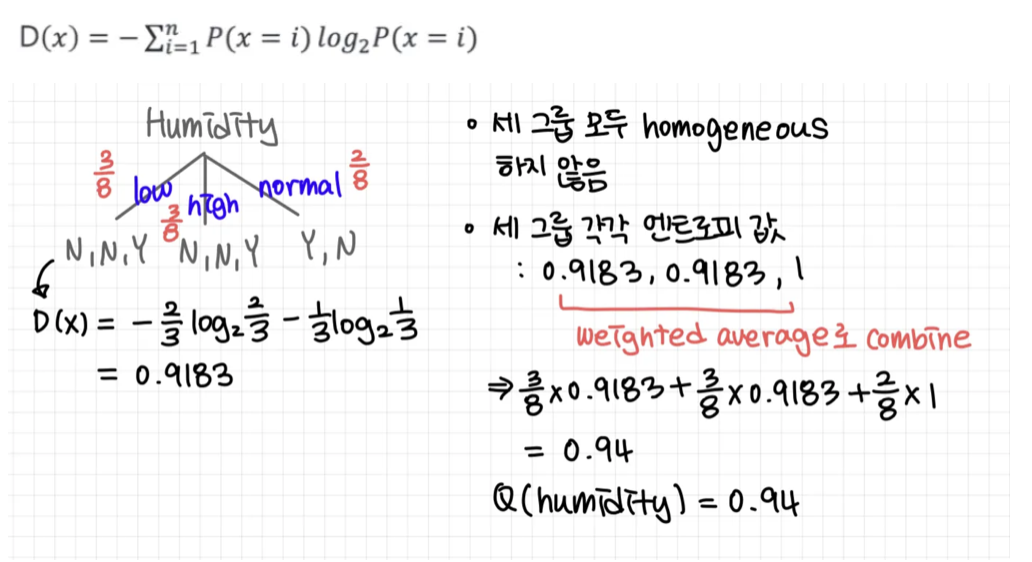 D(x) = − ∑ⁿᵢ₌₁ P(x = i) log₂P(x = i)
Humidity
3/8 low 3/8 high normal 2/8
N,N,Y N,N,Y Y,N
D(x) = − 2/3 log₂ 2/3 − 1/3 log₂ 1/3
= 0.9183
• 세 그룹 모두 homogeneous
하지 않음
• 세 그룹 각각 엔트로피 값
: 0.9183, 0.9183, 1
weighted average로 combine
⇒ 3/8 × 0.9183 + 3/8 × 0.9183 + 2/8 × 1
= 0.94
Q(humidity) = 0.94